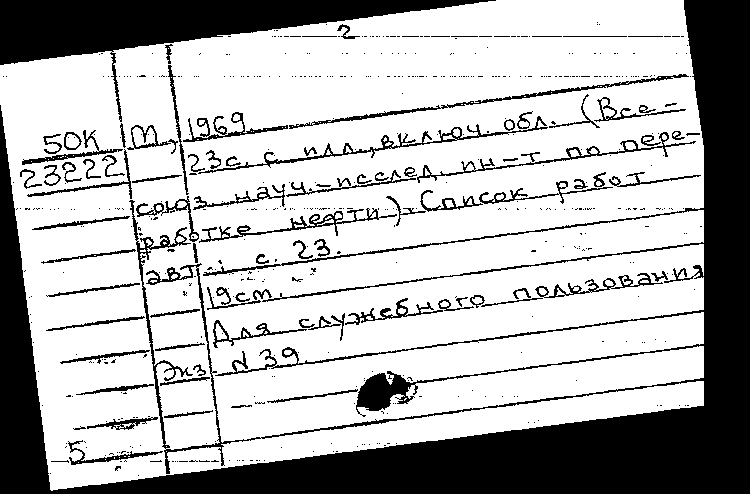 2
50К М, 1969.
23222 23с. с илл., включ. обл. (Все-
союз. науч.-исслед. ин-т по пере-
работке нефти). Список работ
авт.: с. 23.
19см.
Для служебного пользования
Экз. N 39.
5